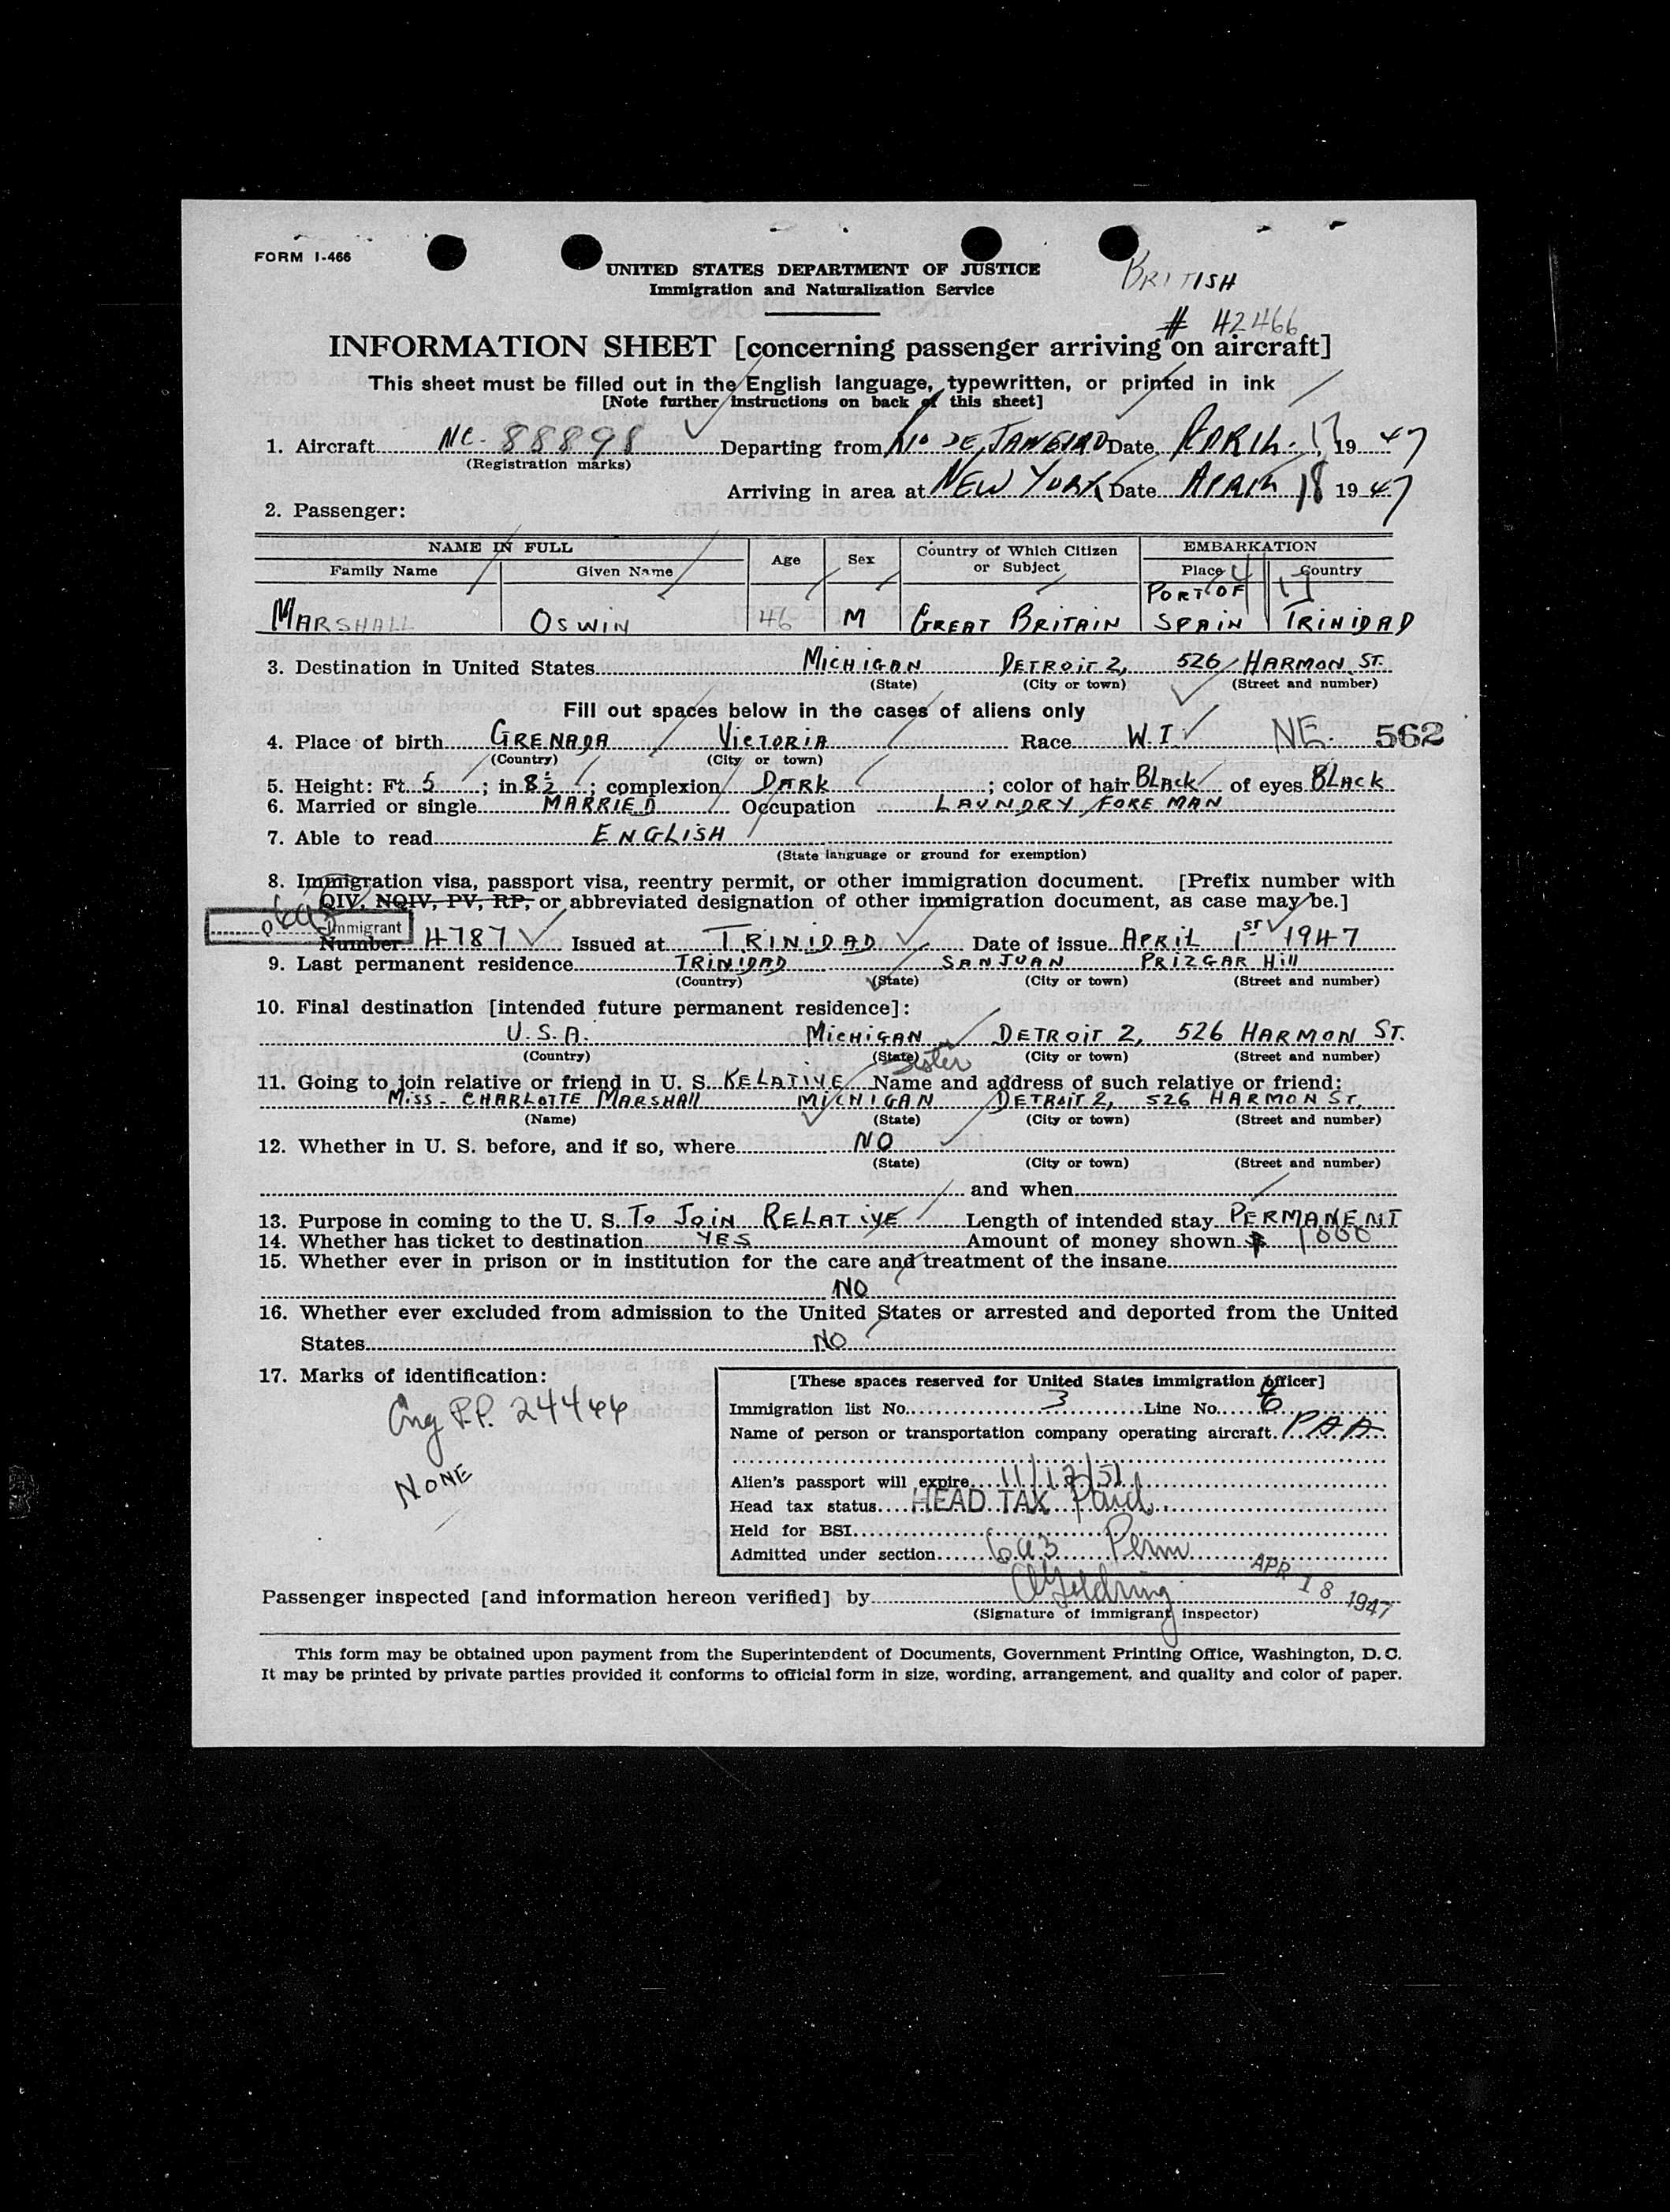 FORM I-466
UNITED STATES DEPARTMENT OF JUSTICE
Immigration and Naturalization Service
BRITISH
# 42466
INFORMATION SHEET [concerning passenger arriving on aircraft]
This sheet must be filled out in the English language, typewritten, or printed in ink
[Note further instructions on back of this sheet]
1. Aircraft NC- 88898 Departing from RIO DE JANEIRO Date APRIL 17 1947
(Registration marks)
Arriving in area at NEW YORK Date APRIL 18 1947
2. Passenger:
NAME IN FULL Age Sex Country of Which Citizen or Subject EMBARKATION
Family Name Given Name Place Country
MARSHALL OSWIN 46 M GREAT BRITAIN PORT OF SPAIN TRINIDAD
3. Destination in United States MICHIGAN DETROIT 2, 526 HARMON ST.
(State) (City or town) (Street and number)
Fill out spaces below in the cases of aliens only
4. Place of birth GRENADA VICTORIA Race W.I NE. 562
(Country) (City or town)
5. Height: Ft. 5; in 8½; complexion DARK; color of hair BLACK of eyes BLACK
6. Married or single MARRIED Occupation LAUNDRY FOREMAN
7. Able to read ENGLISH
(State language or ground for exemption)
8. Immigration visa, passport visa, reentry permit, or other immigration document. [Prefix number with
QIV, NQIV, PV, RP, or abbreviated designation of other immigration document, as case may be.]
Q 6a3 Immigrant
Number 4787 Issued at TRINIDAD Date of issue APRIL 1ST 1947
9. Last permanent residence TRINIDAD SAN JUAN PRIZGAR Hill
(Country) (State) (City or town) (Street and number)
10. Final destination [intended future permanent residence]:
U.S.A. MICHIGAN DETROIT 2, 526 HARMON ST.
(Country) (State) (City or town) (Street and number)
Sister
11. Going to join relative or friend in U. S. RELATIVE Name and address of such relative or friend:
MISS- CHARLOTTE MARSHALL MICHIGAN DETROIT 2, 526 HARMON ST.
(Name) (State) (City or town) (Street and number)
12. Whether in U. S. before, and if so, where NO
(State) (City or town) (Street and number)
and when
13. Purpose in coming to the U. S. TO JOIN RELATIVE Length of intended stay PERMANENT
14. Whether has ticket to destination YES Amount of money shown $ 1000
15. Whether ever in prison or in institution for the care and treatment of the insane
NO
16. Whether ever excluded from admission to the United States or arrested and deported from the United
States NO
17. Marks of identification:
P.P. 24466
NONE
[These spaces reserved for United States immigration officer]
Immigration list No. 3 Line No. 6
Name of person or transportation company operating aircraft. PAA
Alien's passport will expire 11/12/51
Head tax status HEAD TAX Paid
Held for BSI
Admitted under section 6a3 Perm
APR 18 1947
Passenger inspected [and information hereon verified] by
(Signature of immigrant inspector)
This form may be obtained upon payment from the Superintendent of Documents, Government Printing Office, Washington, D. C.
It may be printed by private parties provided it conforms to official form in size, wording, arrangement, and quality and color of paper.